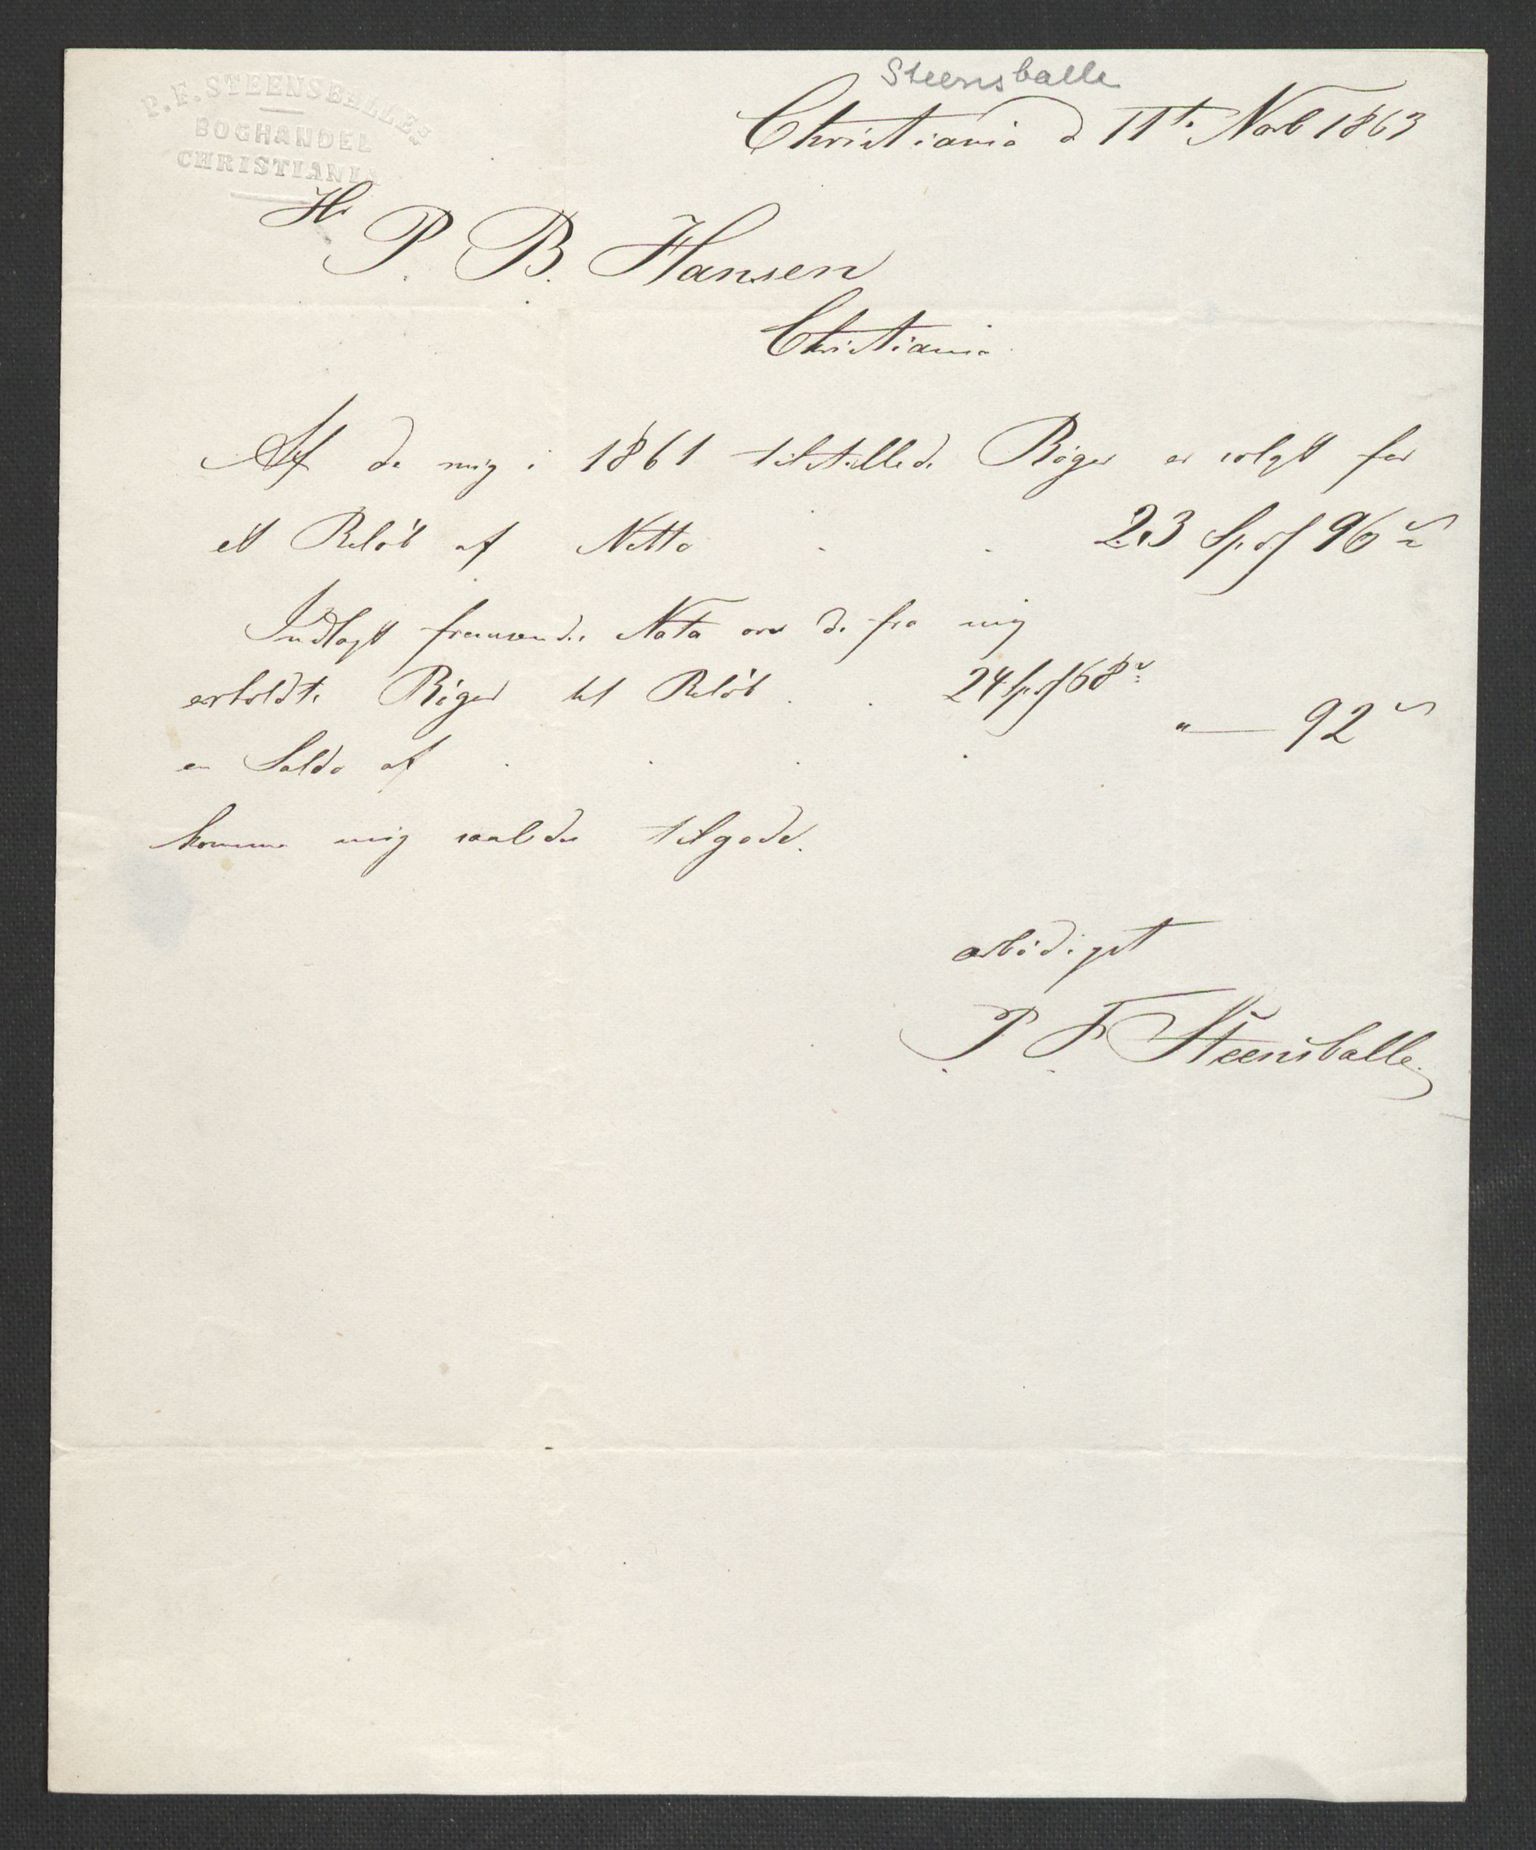 P. F. STEENSBALLES
BOGHANDEL
CHRISTIANIA
Steensballe
Christiania d 11te Novb 1863
Hr
P. B. Hansen
Christiania
Af de mig i 1861 tilstillede Bøger er solgt for
et Beløb af Netto . . 23 Spd 96 s
Indlagt fremsendes Nota over de fra mig
erholdte Bøger til Beløb . . 24 Spd 68 s
" — 92 s
en Saldo af . . . .
komme mig saaledes tilgode.
ærbødigst
P. F. Steensballe.